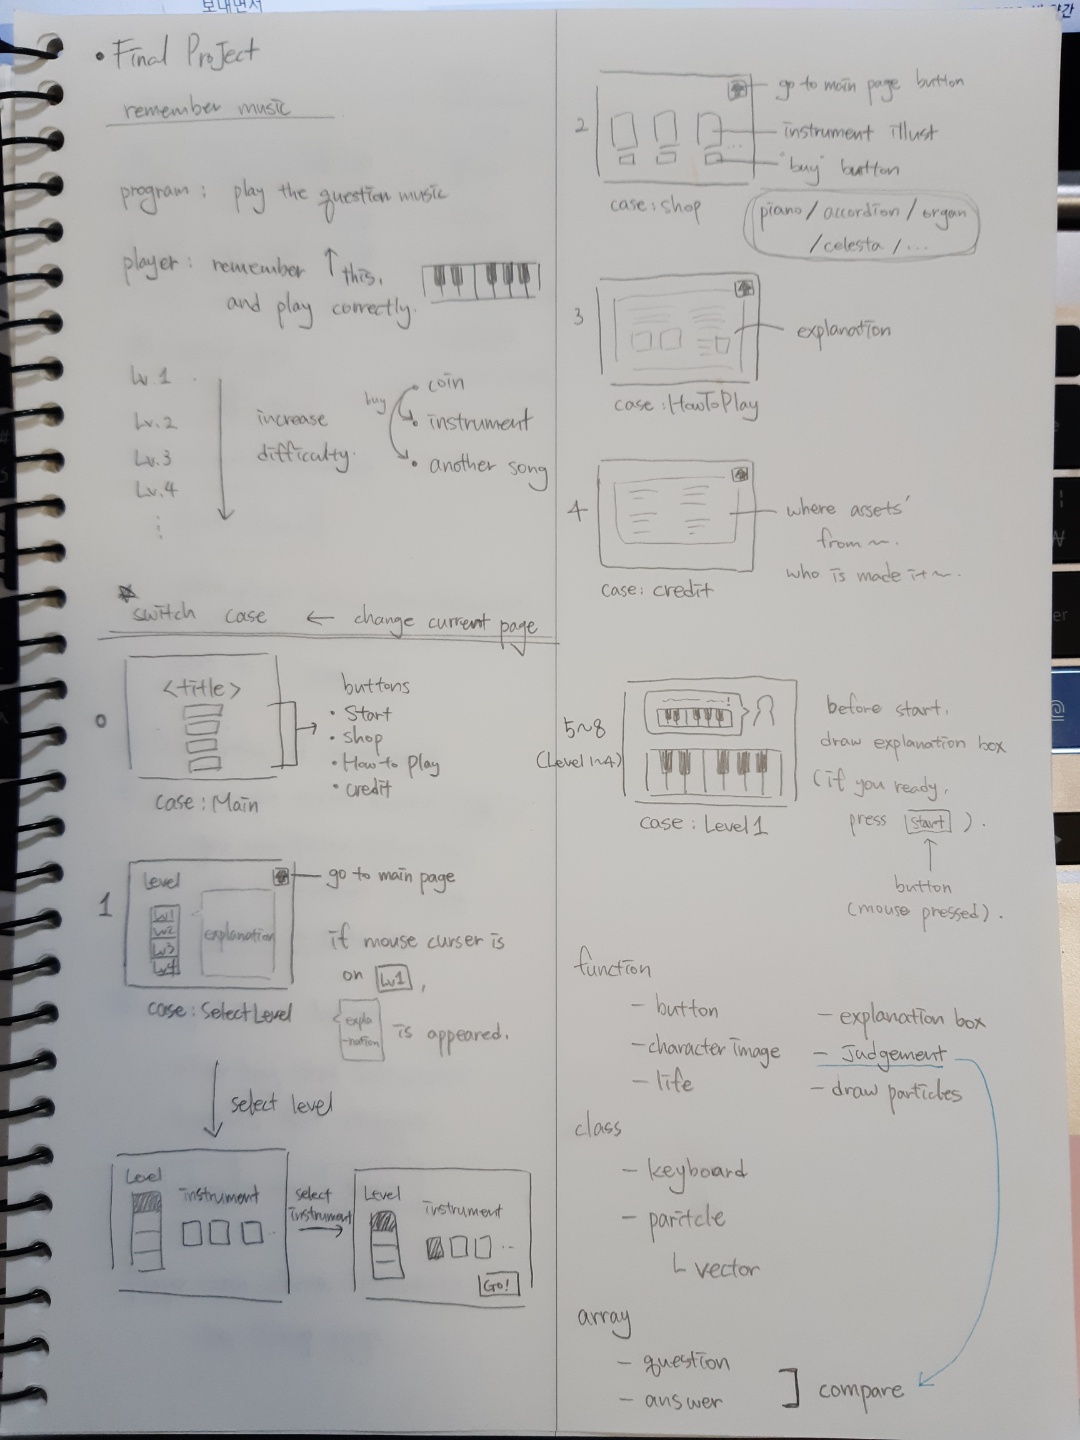 보내면서
• Final Project
remember music
program : play the question music
player : remember ↑ this,
and play correctly.
Lv.1
Lv.2
Lv.3
Lv.4
increase
difficulty.
buy
• coin
• instrument
• another song
switch case ← change current page
0
<title>
buttons
• Start
• shop
• How to play
• credit
case : Main
1
Level
Lv1
Lv2
Lv3
Lv4
explanation
go to main page
if mouse curser is
on Lv1,
expla
-nation
is appeared.
case : Select Level
select level
Level
instrument
select
instrument
Level
instrument
Go!
2
go to main page button
instrument illust
"buy" button
case : shop
piano / accordion / organ
/ celesta / ...
3
explanation
case : HowToPlay
4
where assets'
from ~.
who is made it ~.
case : credit
5~8
(Level 1~4)
before start,
draw explanation box
(if you ready,
press start ).
case : Level 1
button
(mouse pressed).
function
- button
- character image
- life
- explanation box
- Judgement
- draw particles
class
- keyboard
- paritcle
└ vector
array
- question
- answer
compare